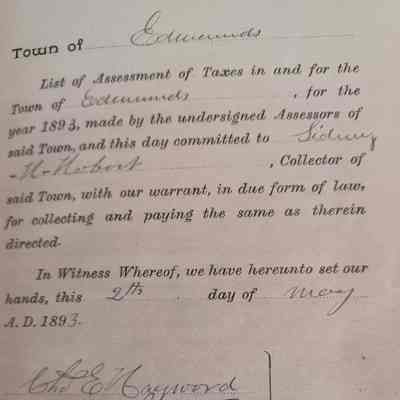 Town of Edmunds
List of Assessment of Taxes in and for the
Town of Edmunds, for the
year 1893, made by the undersigned Assessors of
said Town, and this day committed to Sidney
H Hobart, Collector of
said Town, with our warrant, in due form of law,
for collecting and paying the same as therein
directed.
In Witness Whereof, we have hereunto set our
hands, this 2th day of May
A. D. 1893.
Chs E Hayword